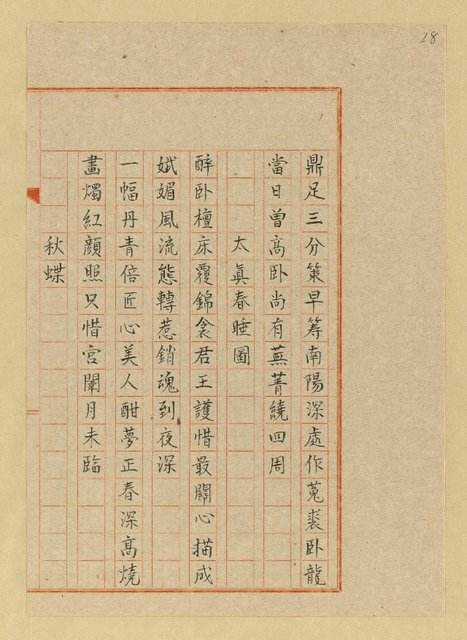 28
鼎足三分策早籌南陽深處作菟裘卧龍
當日曾高卧尚有蕪菁繞四周
太真春睡圖
醉卧檀床覆錦衾君王護惜最關心描成
娬媚風流態轉惹銷魂到夜深
一幅丹青倍匠心美人酣夢正春深高燒
畫燭紅顏照只惜宮闈月未臨
秋蝶